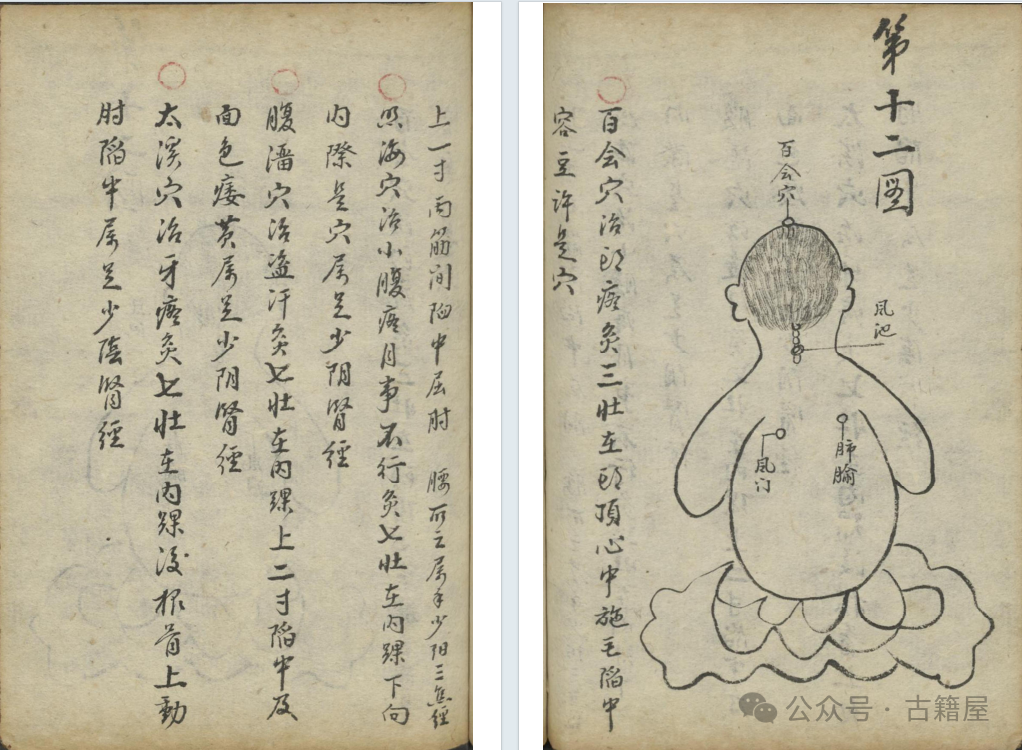 第十二図
百会穴
風池
肺腧
風门
百会穴治頭疼灸三壮在頭頂心中施毛陷中
容豆許是穴
上一寸两筋间陷中屈肘 腰所 属手少阳三焦經
照海穴治小腹疼月事不行灸七壮在内踝下向
内際是穴属足少阴腎經
腹溜穴治盗汗灸七壮在内踝上二寸陷中及
面色痿黄属足少阴腎經
太溪穴治牙疼灸七壮在内踝後根骨上動
肘陷中属足少陰腎經
公众号·古籍屋